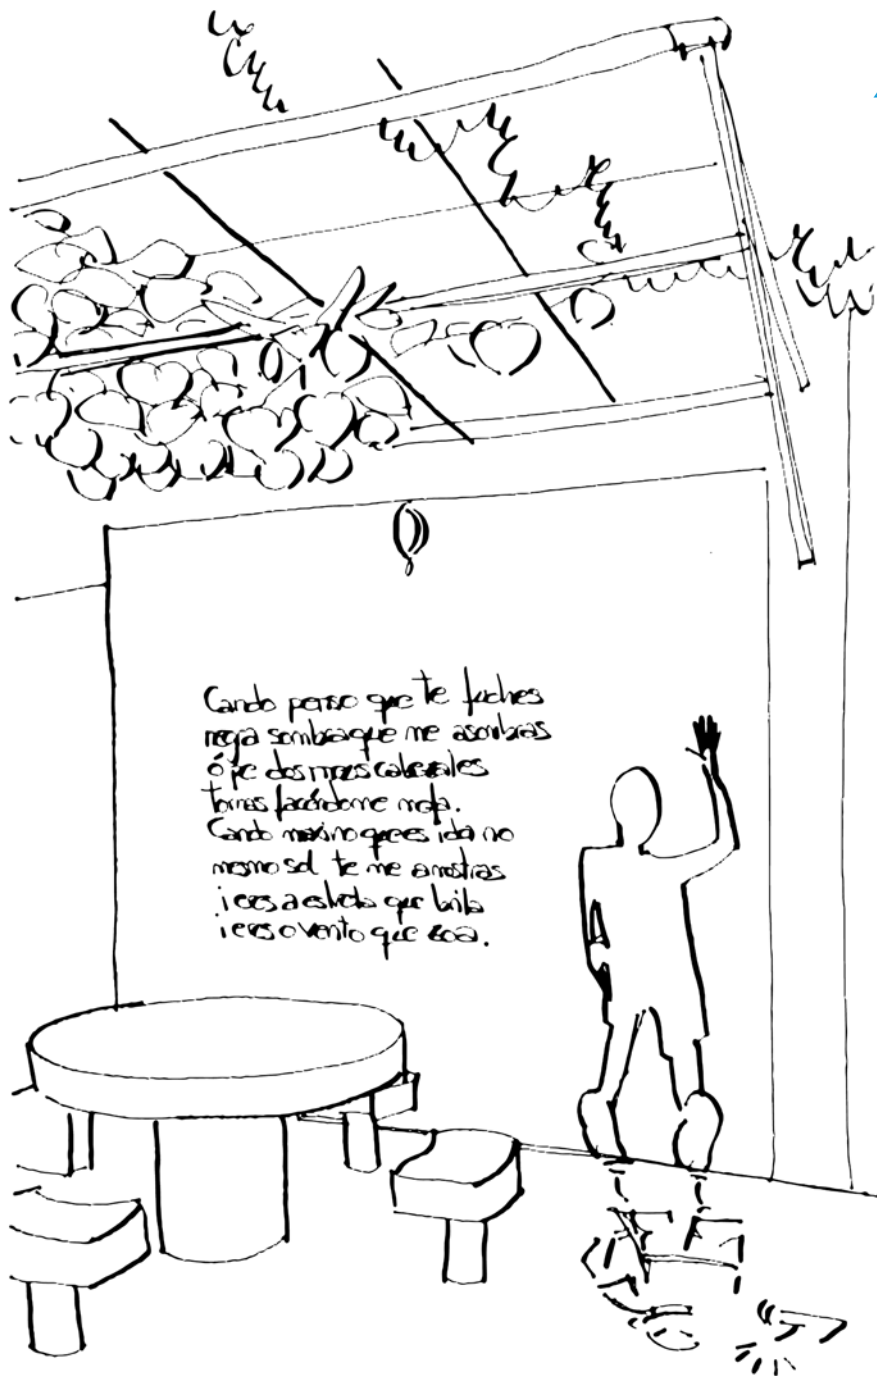 Cando penso que te fuches
negra sombra que me asombras
ó pe dos meus cabezales
tornas facéndome mofa.
Cando maxino que es ida no
mesmo sol te me amostras
i eres a estrela que brila
i eres o vento que zoa.